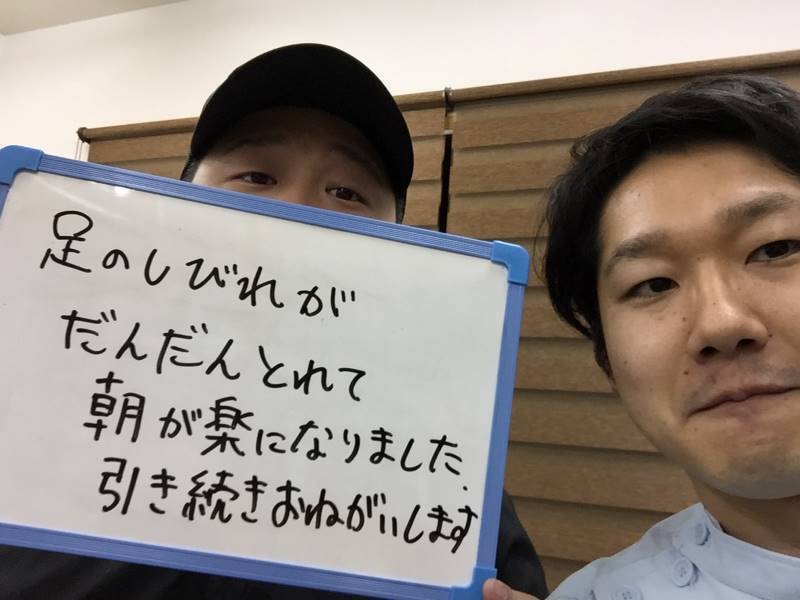 足のしびれが
だんだんとれて
朝が楽になりました.
引き続きおねがいします